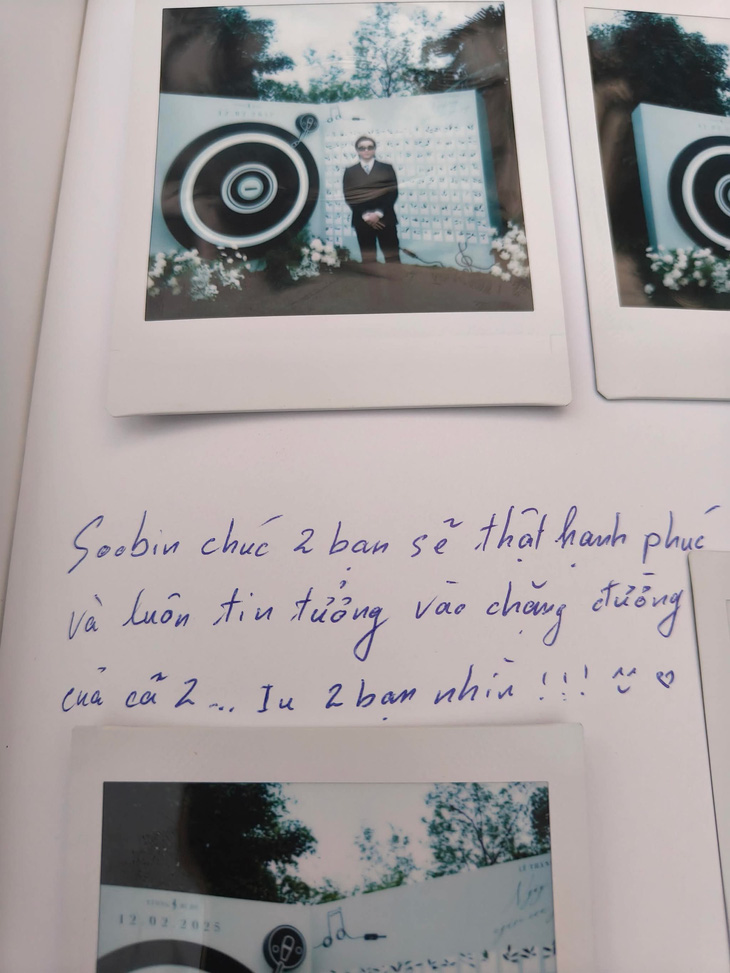 Soobin chúc 2 bạn sẽ thật hạnh phúc
và luôn tin tưởng vào chặng đường
của cả 2... Iu 2 bạn nhìu !!! ♡
12.02.2025